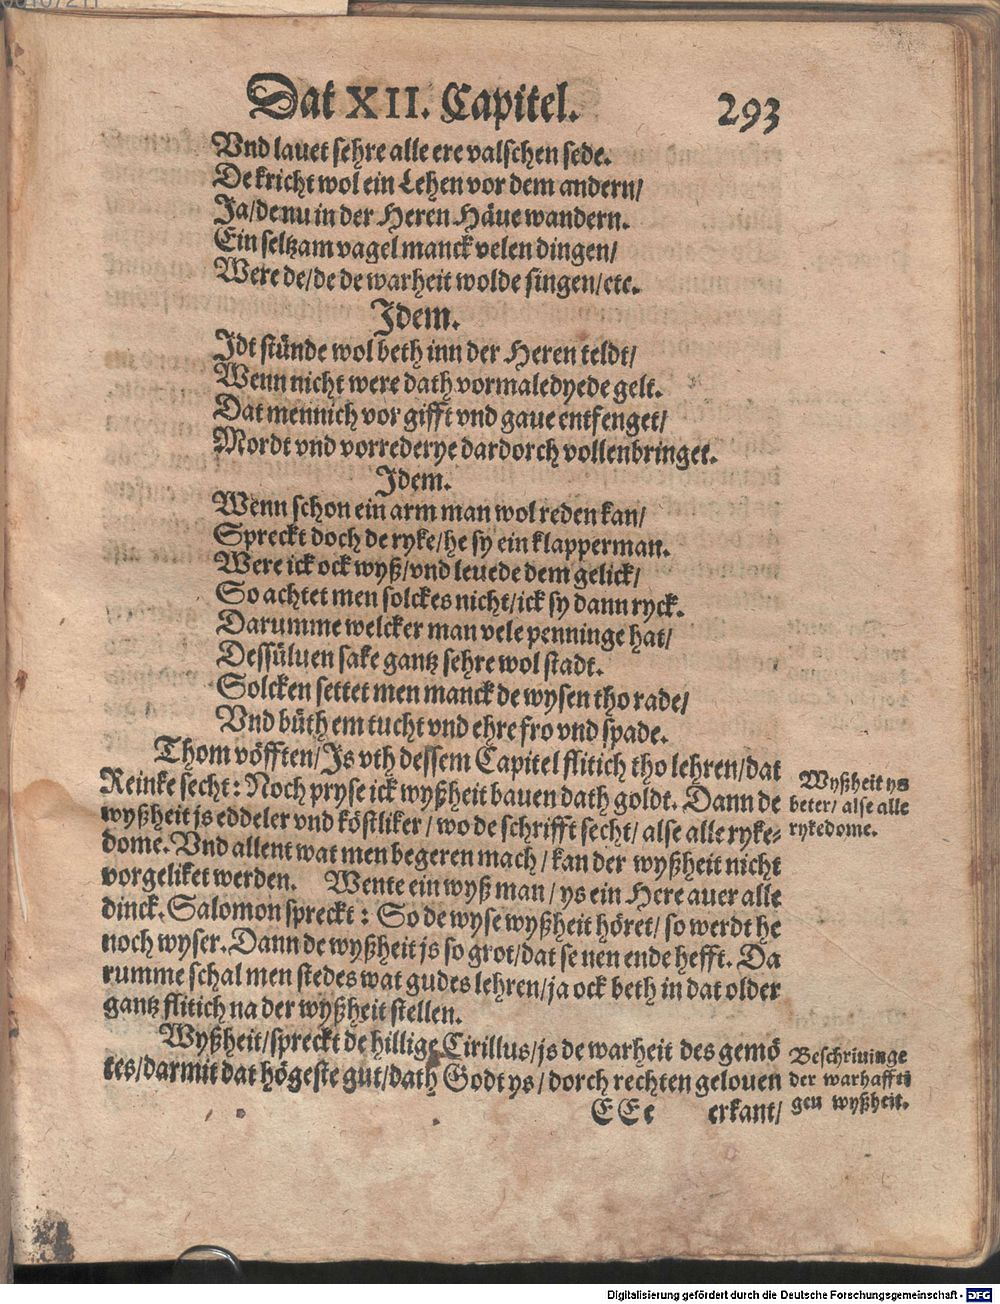 Dat XII. Capitel. 293
Vnd lauet sehre alle ere valschen sede.
De kricht wol ein Lehen vor dem andern/
Ja/de nu in der Heren Häue wandern.
Ein seltzam vagel manck velen dingen/
Were de/de de warheit wolde singen/etc.
Idem.
Idt stünde wol beth inn der Heren teldt/
Wenn nicht were dath vormaledyede gelt.
Dat mennich vor gifft vnd gaue entfenget/
Mordt vnd vorrederye dardorch vollenbringet.
Idem.
Wenn schon ein arm man wol reden kan/
Spreckt doch de ryke/he sy ein klapperman.
Were ick ock wyß/vnd leuede dem gelick/
So achtet men solckes nicht/ick sy dann ryck.
Darumme welcker man vele penninge hat/
Dessüluen sake gantz sehre wol stadt.
Solcken settet men manck de wysen tho rade/
Vnd büth em tucht vnd ehre fro vnd spade.
Thom vöfften/Is vth dessem Capitel flitich tho lehren/dat
Reinke secht: Noch pryse ick wyßheit bauen dath goldt. Dann de
wyßheit js eddeler vnd köstliker/wo de schrifft secht/alse alle ryke-
dome. Vnd allent wat men begeren mach/kan der wyßheit nicht
vorgeliket werden. Wente ein wyß man/ys ein Here auer alle
dinck. Salomon spreckt: So de wyse wyßheit höret/so werdt he
noch wyser. Dann de wyßheit js so grot/dat se nen ende hefft. Da
rumme schal men stedes wat gudes lehren/ja ock beth in dat older
gantz flitich na der wyßheit stellen.
Wyßheit ys
beter/alse alle
rykedome.
Wyßheit/spreckt de hillige Cirillus/js de warheit des gemö
tes/darmit dat högeste gut/dath Godt ys/dorch rechten gelouen
Beschriuinge
der warhaffti
gen wyßheit.
EEe erkant/
Digitalisierung gefördert durch die Deutsche Forschungsgemeinschaft - DFG